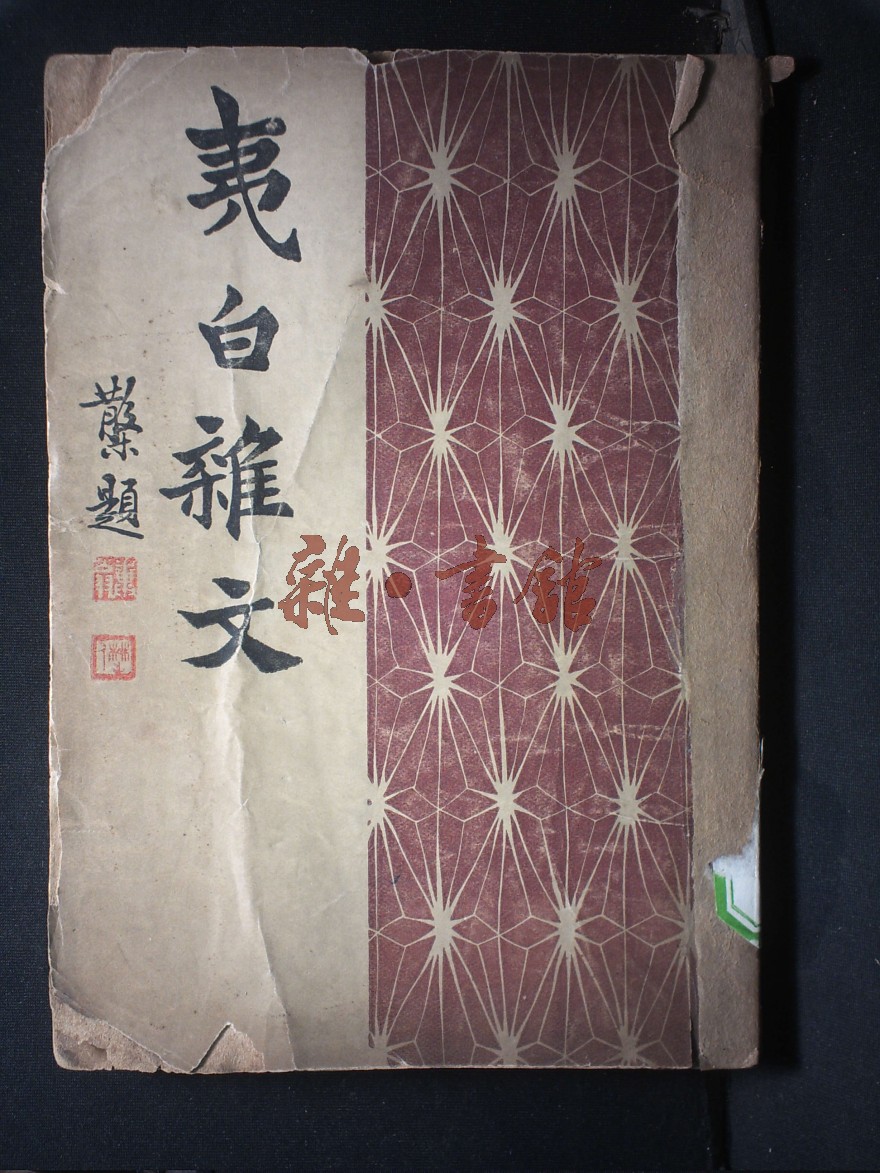 夷白雜文
題
雜·書館